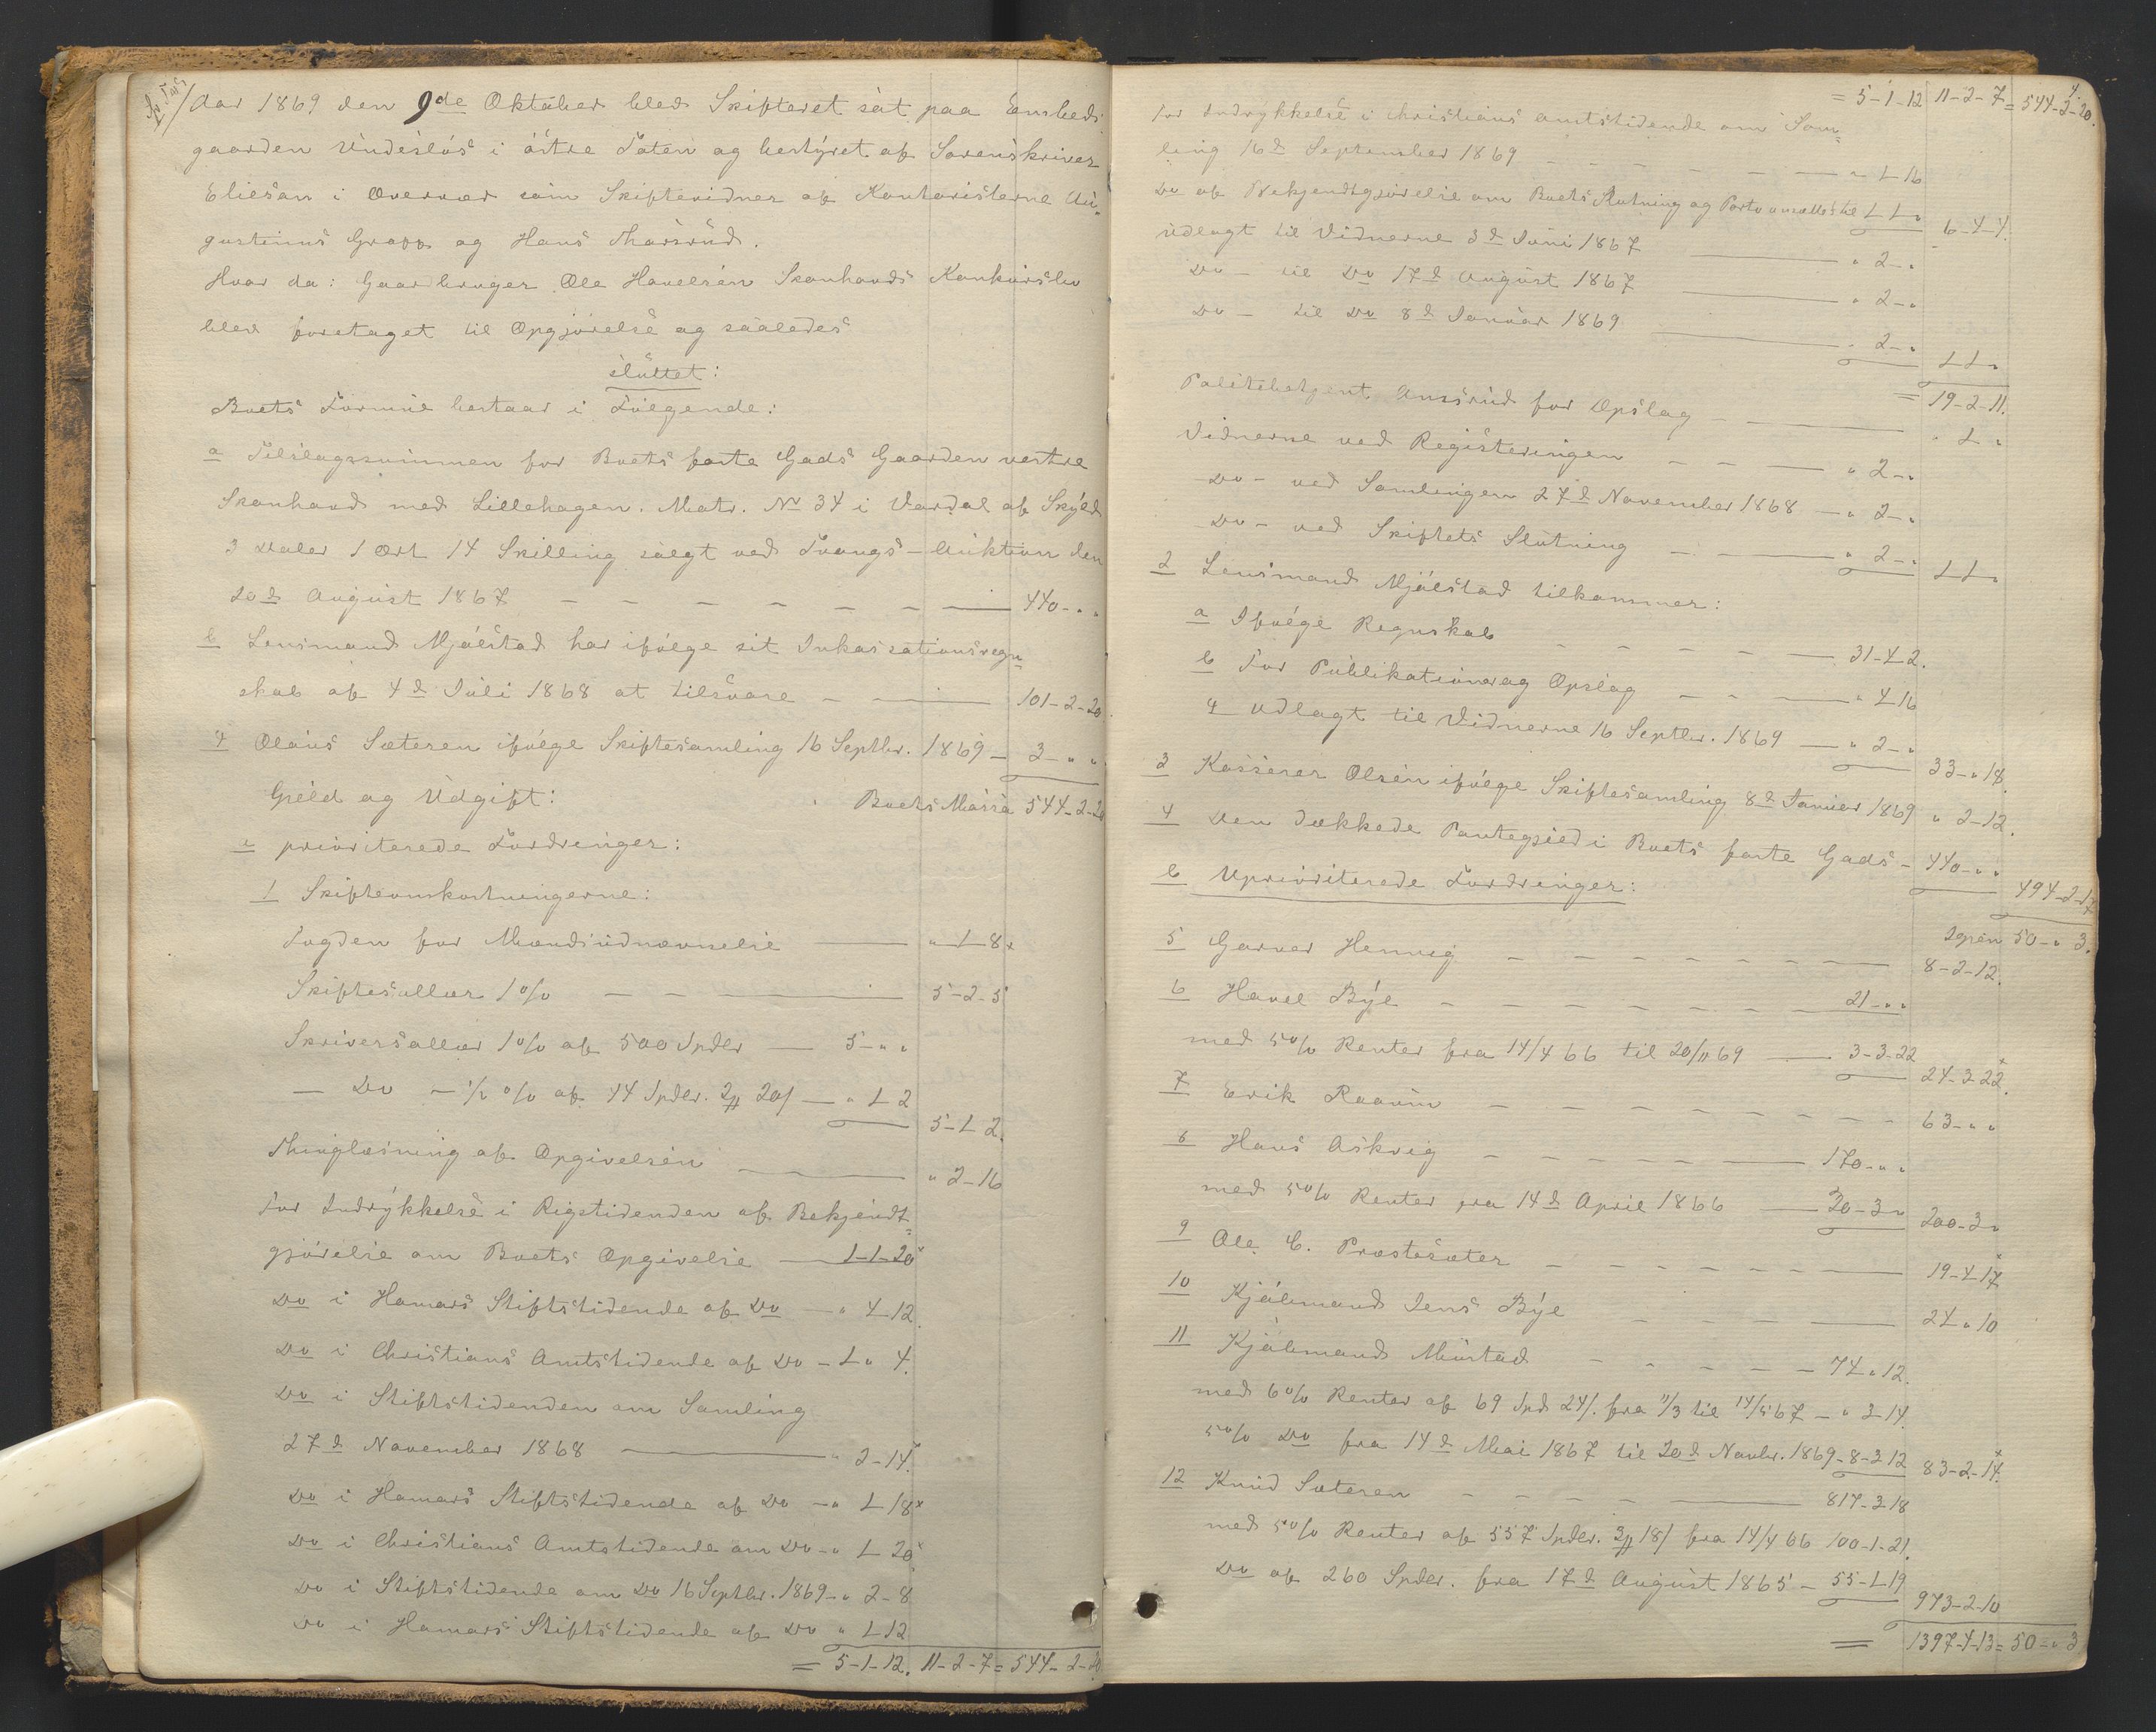 Aar 1869 den 9de Oktober blev Skifteret sat paa Embeds
gaarden Undeslös i östre Toten og bestyret af Sorenskriver
Eliesøn i Overvær som Skiftevidner af Kontoristerne Au-
gustinus Grøpp og Hans Thorsrud.
Hvor da: Gaardbruger Ole Havelsen Skonhovds Konkursbo
blev foretaget til Opgjörelse og saaledes
sluttet:
Boets Formue bestaar i Fölgende:
a Tilslagssummen for Boets faste Gods Gaarden vestre
Skonhovd med Lillehagen. Matr. No 34 i Vardal af Skyld
3 Daler 1 Ort 14 Skilling solgt ved Tvangs-Auktion den
20d August 1867 - - - - - - - 440-"-"
b Lensmand Mjölstad har ifölge sit Inkassationsregn-
skab af 4d Juli 1868 at tilsvare - - 101-2-20
c Olaus Sæteren ifölge Skiftesamling 16 Septbr. 1869 - 3-"-"
Gjeld og Udgift: Boets Massa 544-2-20
a prioriterede Fordringer:
1 Skifteomkostningerne:
Fogden for Mændsudnævnelse - "-1-8
Skiftesallær 1% - - 5-2-5
Skriversallær 1% af 500 Spdlr - 5-"-"
- Do - ½% af 44 Spdlr. 2# 20/ - "-1-2
5-1-2.
Thinglæsning af Opgivelsen - "-2-16
For Indrykkelse i Rigstidenden af Bekjendt-
gjörelse om Boets Opgivelse - 1-1-20
Do i Hamars Stiftstidende af Do - "-4-12.
Do i Christians Amtstidende af Do - 1-"-4.
Do i Stiftstidenden om Samling
27d November 1868 - "-2-14.
Do i Hamars Stiftstidende af Do - "-1-18
Do i Christians Amtstidende om Do - "-1-20
Do i Stiftstidende om Do 16 Septbr. 1869 - "-2-8
Do i Hamars Stiftstidende af Do "-1-12
= 5-1-12. 11-2-7 = 544-2-20
= 5-1-12 11-2-7 = 544-2-20.
For Indrykkelse i Christians Amtstidende om Sam-
ling 16d September 1869 - - - - "-1-16
Do af Bekjendtgjörelse om Boets Slutning og Porto ansættes til 1-1-"
6-4-4.
Udlagt til Vidnerne 3d Juni 1867 - "-2-"
Do - til Do 17d August 1867 - "-2-"
Do - til Do 8d Januar 1869 - "-2-"
1-1-"
= 19-2-11.
Politibetjent Amsrud for Opslag - "-1-"
Vidnerne ved Registeringen - - - "-2-"
Do - ved Samlingen 27d November 1868 - "-2-"
Do - ved Skiftets Slutning - - "-2-"
1-1-"
2 Lensmand Mjölstad tilkommer:
a Ifölge Regnskab - - - - - 31-4-2.
b For Publikationer og Opslag - - - "-4-16
c Udlagt til Vidnerne 16 Septbr. 1869 - "-2-"
33-"-18.
3 Kasserer Olsen ifölge Skiftesamling 8d Januar 1869 "-2-12.
4 Den dækkede Pantegjeld i Boets faste Gods - 440-"-"
494-2-17
b Uprioriterede Fordringer:
Igjen 50-"-3.
5 Garver Hennig - - - - - - 8-2-12.
6 Havel Bye - - - - - - 21-"-"
med 5% Renter fra 14/4 66 til 20/11 69 - 3-3-22
24-3-22.
7 Erik Raaum - - - - - - - - - 63-"-"
8 Hans Askvig - - - - - - 170-"-"
med 5% Renter fra 14d April 1866 - 30-3-"
200-3-"
9 Ole C. Prestesæter - - - - - - 19-4-17
10 Kjöbmand Jens Bye - - - - 24-"-10
11 Kjöbmand Mustad - - - - - 74-"-12.
med 6% Renter af 69 Spd 24/. fra 11/3 til 14/5 67 - "-3-14.
5% Do fra 14d Mai 1867 til 20d Novbr. 1869 - 8-3-12
83-2-14.
12 Knud Sæteren - - - - 817-3-18
med 5% Renter af 557 Spdlr. 3# 18/ fra 14/4 66 100-1-21.
Do af 260 Spdlr. fra 17d August 1865 - 55-1-19
973-2-10
= 1397-4-13 = 50-"-3